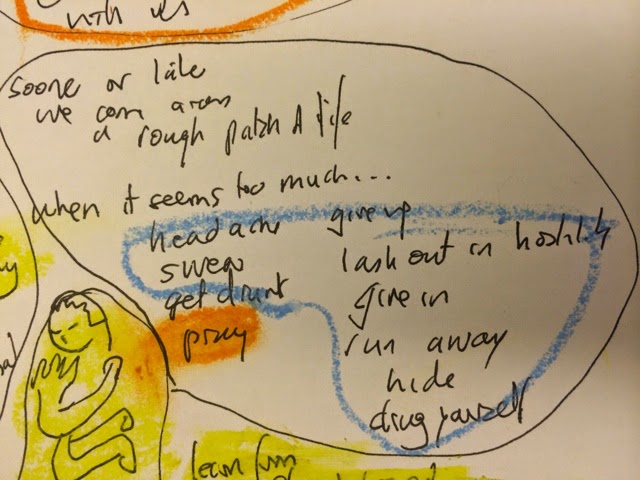 with us
soone or late
we com across
a rough patch A life
when it seems too much...
head ache
swear
get drunk
pray
give up
lash out in hostility
give in
run away
hide
drug yourself
learn from